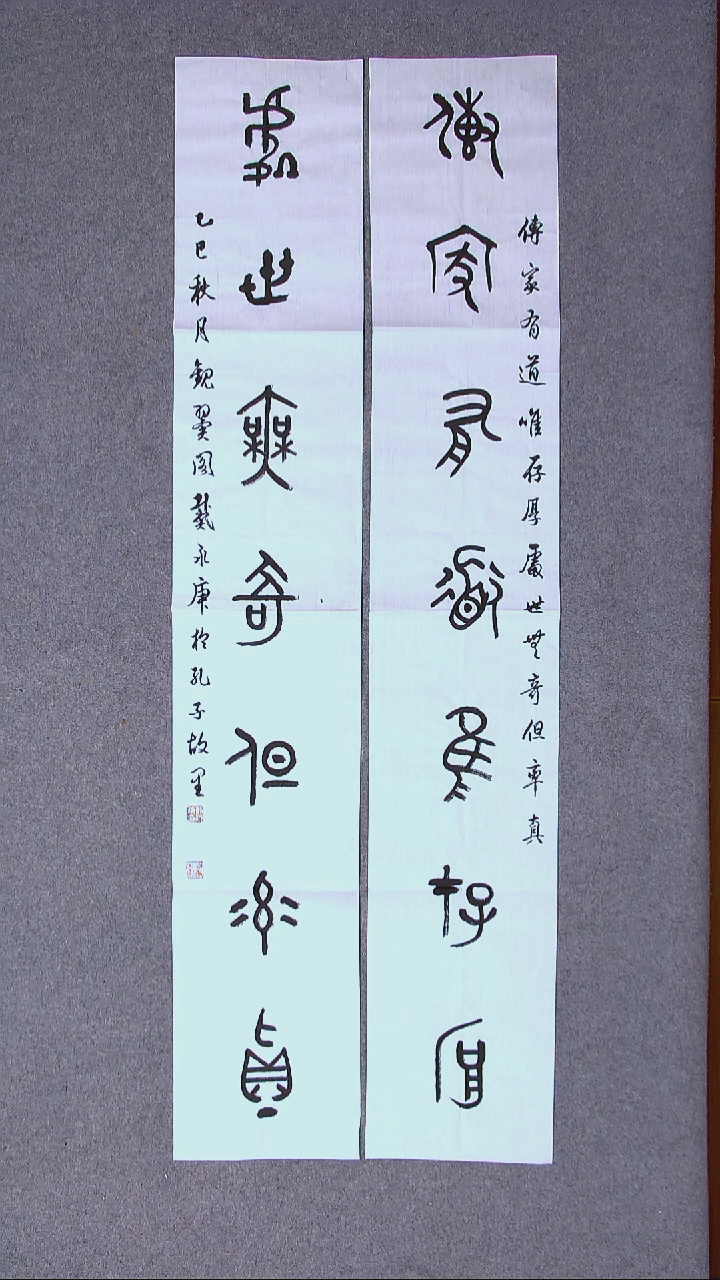 傳家有道唯存厚
傳家有道唯存厚處世無奇但率真
處世無奇但率真
乙巳秋月觀翼閣戴永庫於孔子故里